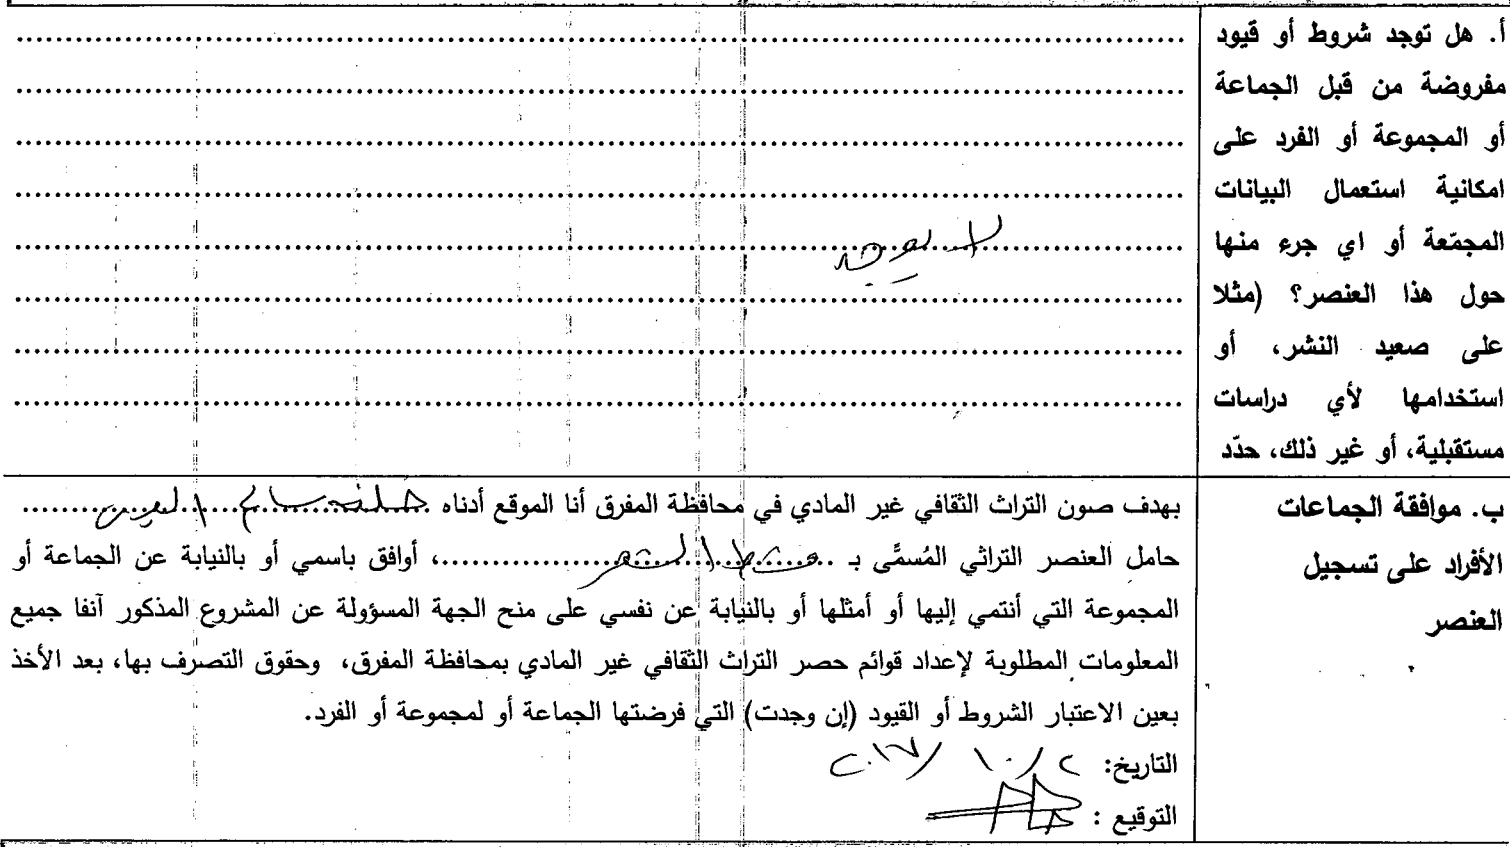 أ. هل توجد شروط أو قيود
مفروضة من قبل الجماعة
أو المجموعة أو الفرد على
امكانية استعمال البيانات
المجمّعة أو اي جرء منها
حول هذا العنصر؟ (مثلا
على صعيد النشر، أو
استخدامها لأي دراسات
مستقبلية، أو غير ذلك، حدّد
لا يوجد
ب. موافقة الجماعات
الأفراد على تسجيل
العنصر
بهدف صون التراث الثقافي غير المادي في محافظة المفرق أنا الموقع أدناه
حامل العنصر التراثي المُسمَّى بـ ..................، أوافق باسمي أو بالنيابة عن الجماعة أو
المجموعة التي أنتمي إليها أو أمثلها أو بالنيابة عن نفسي على منح الجهة المسؤولة عن المشروع المذكور آنفا جميع
المعلومات المطلوبة لإعداد قوائم حصر التراث الثقافي غير المادي بمحافظة المفرق، وحقوق التصرف بها، بعد الأخذ
بعين الاعتبار الشروط أو القيود (إن وجدت) التي فرضتها الجماعة أو لمجموعة أو الفرد.
التاريخ: ٢/١٠/٢٠١٧
التوقيع :